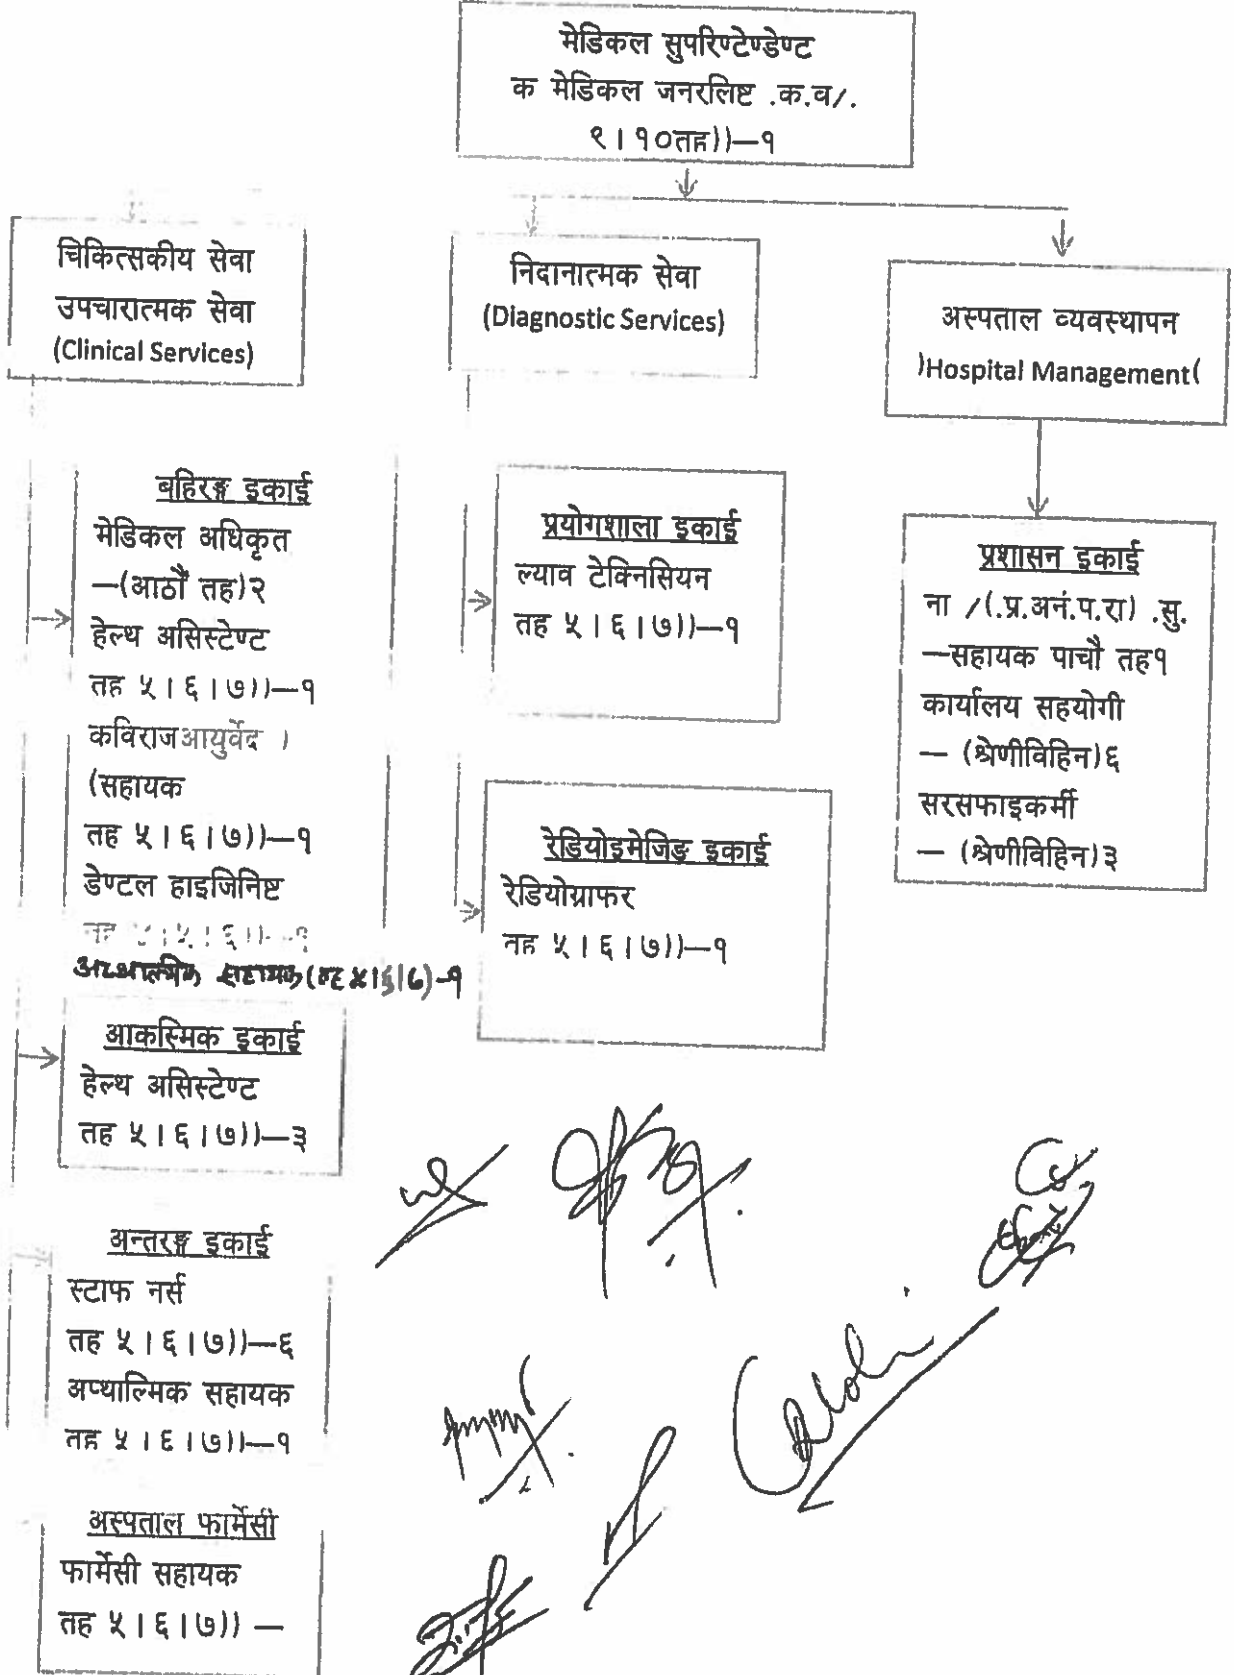 मेडिकल सुपरिण्टेण्डेण्ट
क मेडिकल जनरलिष्ट .क.व/.
९।१०तह))—१
चिकित्सकीय सेवा
उपचारात्मक सेवा
(Clinical Services)
निदानात्मक सेवा
(Diagnostic Services)
अस्पताल व्यवस्थापन
)Hospital Management(
बहिरङ्ग इकाई
मेडिकल अधिकृत
—(आठौं तह)२
हेल्थ असिस्टेण्ट
तह ५।६।७))—१
कविराजआयुर्वेद )
(सहायक
तह ५।६।७))—१
डेण्टल हाइजिनिष्ट
सहायक(तह ५।६।७)-१
आकस्मिक इकाई
हेल्थ असिस्टेण्ट
तह ५।६।७))—३
अन्तरङ्ग इकाई
स्टाफ नर्स
तह ५।६।७))—६
अप्थाल्मिक सहायक
तह ५।६।७))—१
अस्पताल फार्मेसी
फार्मेसी सहायक
तह ५।६।७)) —
प्रयोगशाला इकाई
ल्याव टेक्निसियन
तह ५।६।७))—१
रेडियोइमेजिङ इकाई
रेडियोग्राफर
तह ५।६।७))—१
प्रशासन इकाई
ना /(.प्र.अनं.प.रा) .सु.
—सहायक पाचौ तह१
कार्यालय सहयोगी
— (श्रेणीविहिन)६
सरसफाइकर्मी
— (श्रेणीविहिन)३